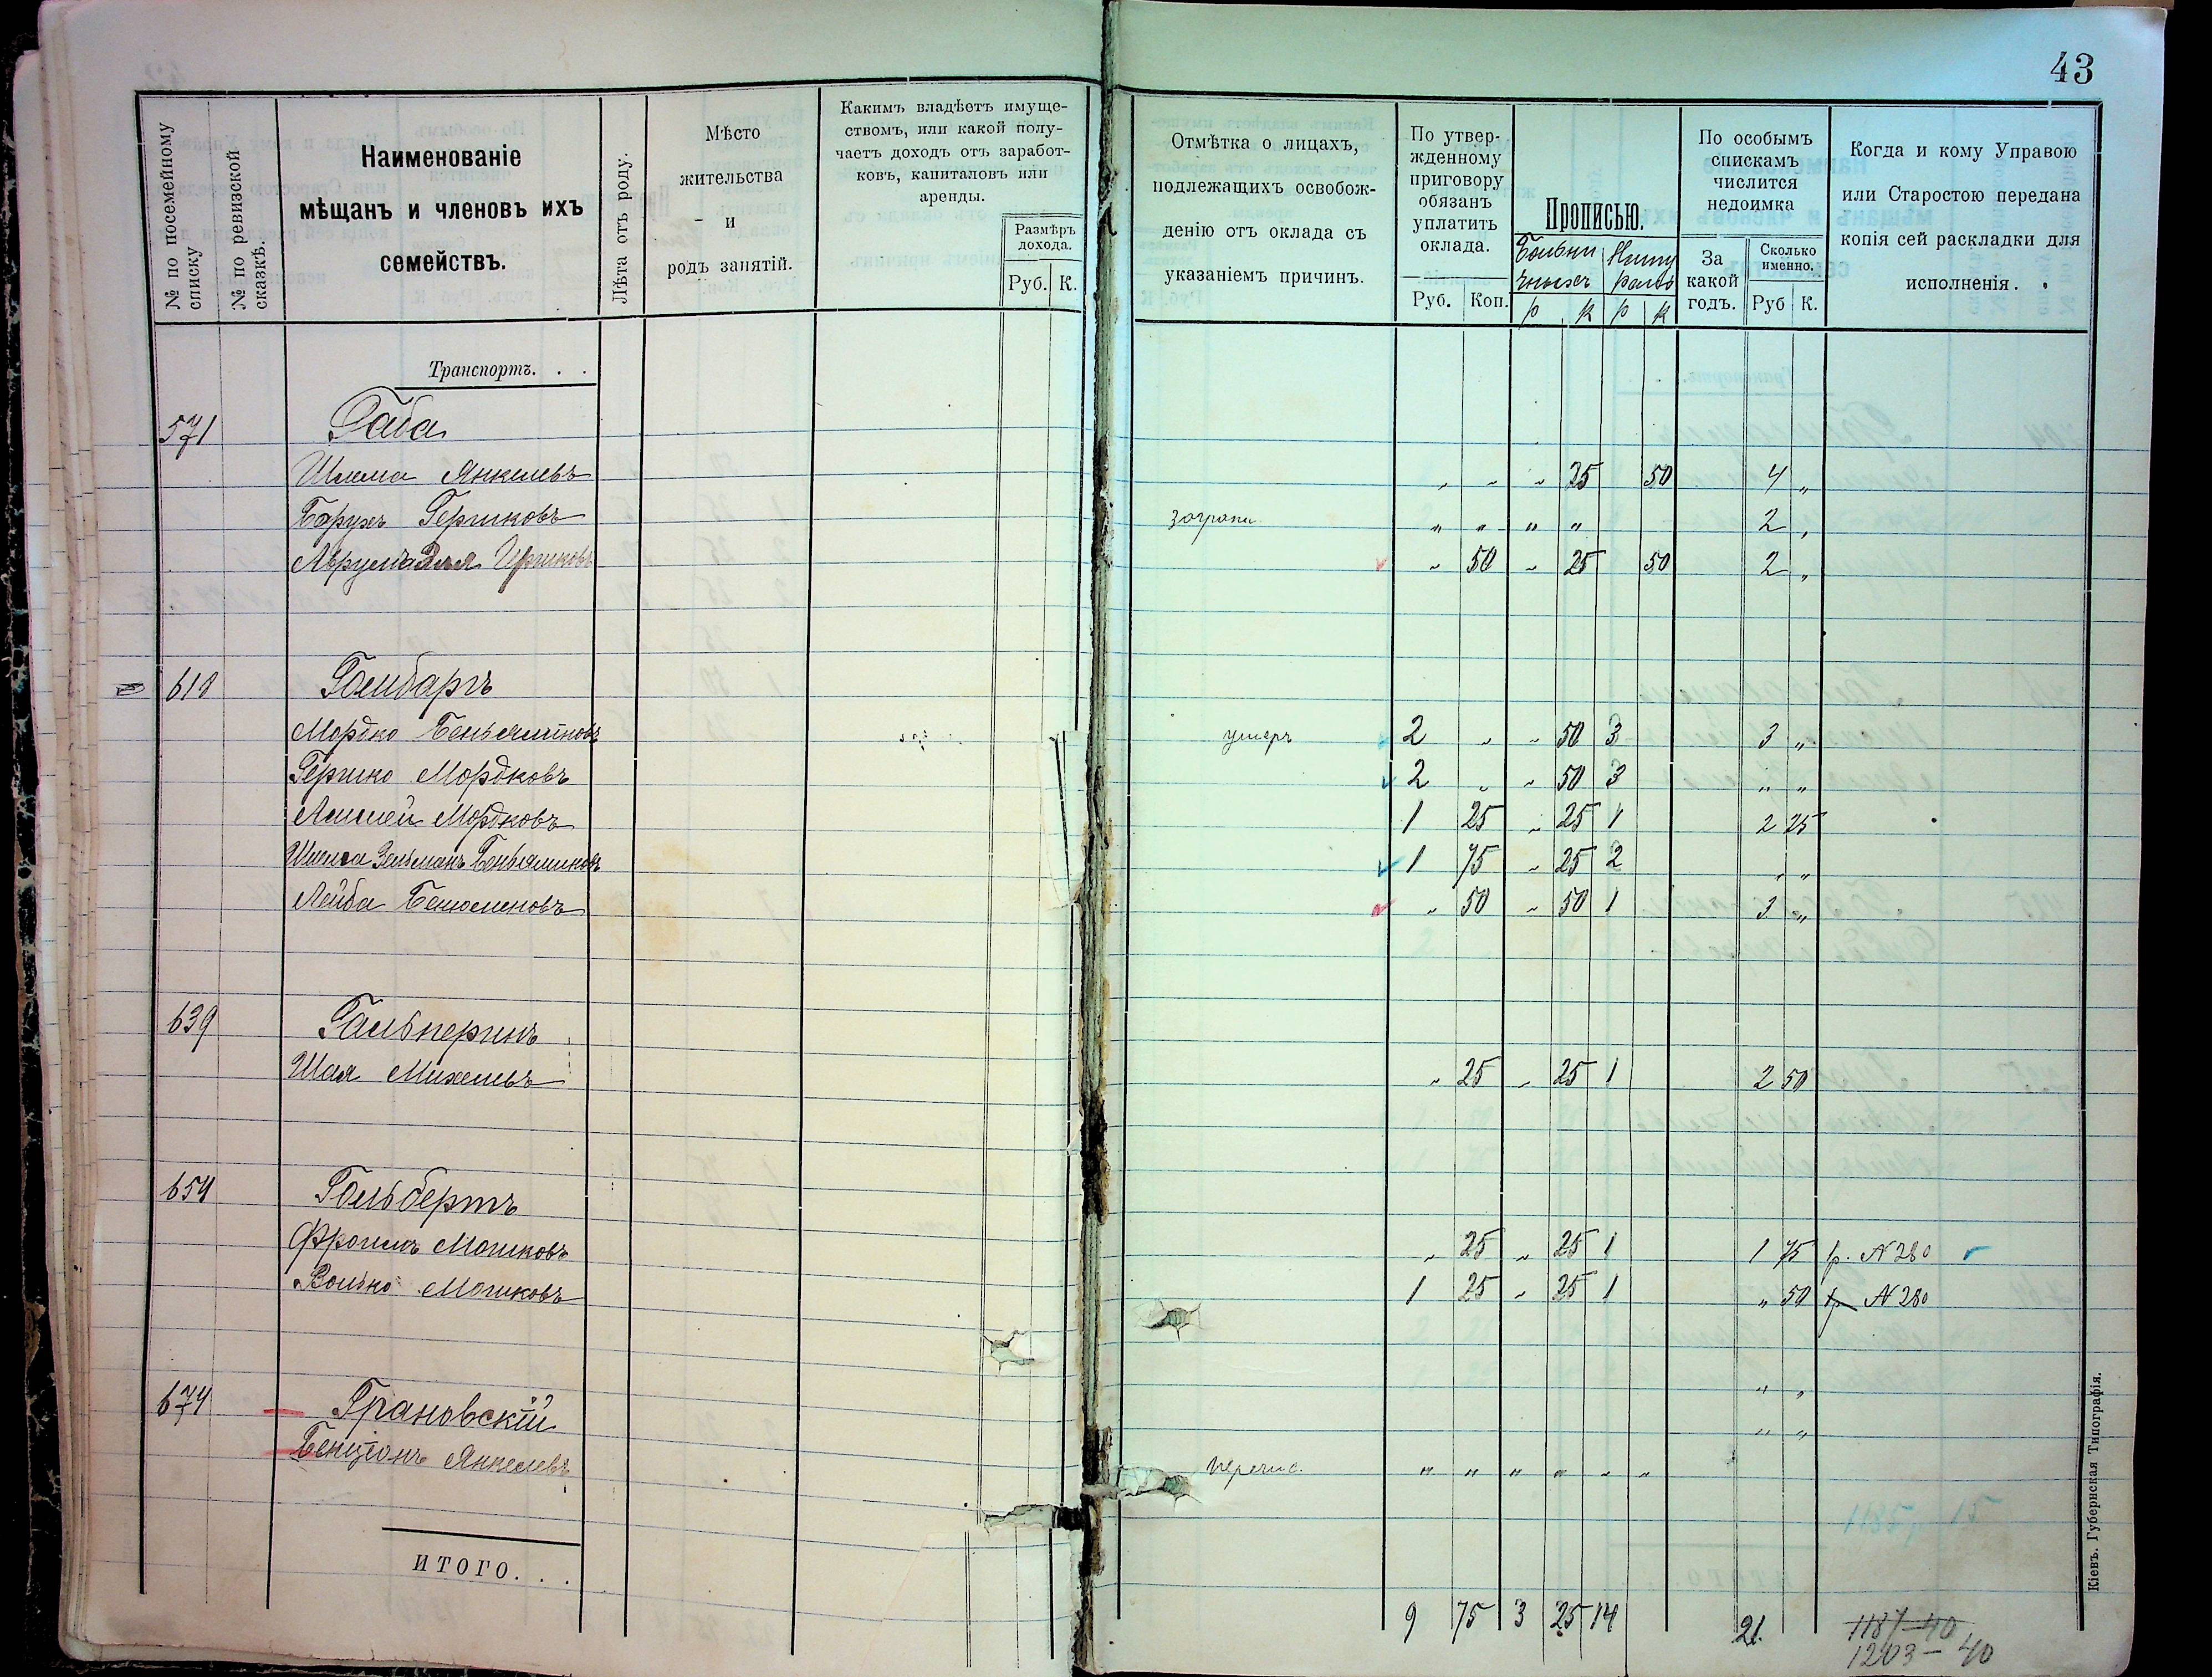 43
№ по посемейному списку
№ по ревизской сказкѣ.
Наименованіе
мѣщанъ и членовъ ихъ
семействъ.
Лѣта отъ роду.
Мѣсто
жительства
и
родъ занятій.
Какимъ владѣетъ имуще-
ствомъ, или какой полу-
чаетъ доходъ отъ заработ-
ковъ, капиталовъ или
аренды.
Размѣръ
дохода.
Руб. К.
Отмѣтка о лицахъ,
подлежащихъ освобож-
денію отъ оклада съ
указаніемъ причинъ.
По утвер-
жденному
приговору
обязанъ
уплатить
оклада.
Руб. Коп.
Прописью.
р к р к
По особымъ
спискамъ
числится
недоимка
За
какой
годъ.
Сколько
именно.
Руб К.
Когда и кому Управою
или Старостою передана
копія сей раскладки для
исполненія.
Транспортъ. . .
571 Габа
Шлема Янкелевъ " " " 25 50 4 "
Барухъ Гершковъ заграни. " " " " 2 "
Аврумъ Эля Гершковъ " 50 " 25 50 2 "
618 Гамбаръ
Мордко Беньяминовъ умеръ 2 " " 50 3 3 "
Гершко Мордковъ 2 " " 50 3 " "
Мордковъ 1 25 " 25 1 2 25
Зельманъ Беньяминовъ 1 75 " 25 2 " "
Лейба Беньоминовъ " 50 " 50 1 3 "
639 Гальперинъ
Шая Михелевъ " 25 " 25 1 2 50
654 Гольбертъ
Фроимъ Мошковъ " 25 " 25 1 1 75 р. N 280
Волько Мошковъ 1 25 " 25 1 " 50 р N 280
" "
674 Грановскій
" "
Бенціонъ Янкелевъ перечис. " " " " " "
ИТОГО. . .
9 75 3 25 14 21.
1187-40
1203-40
Кіевъ. Губернская Типографія.